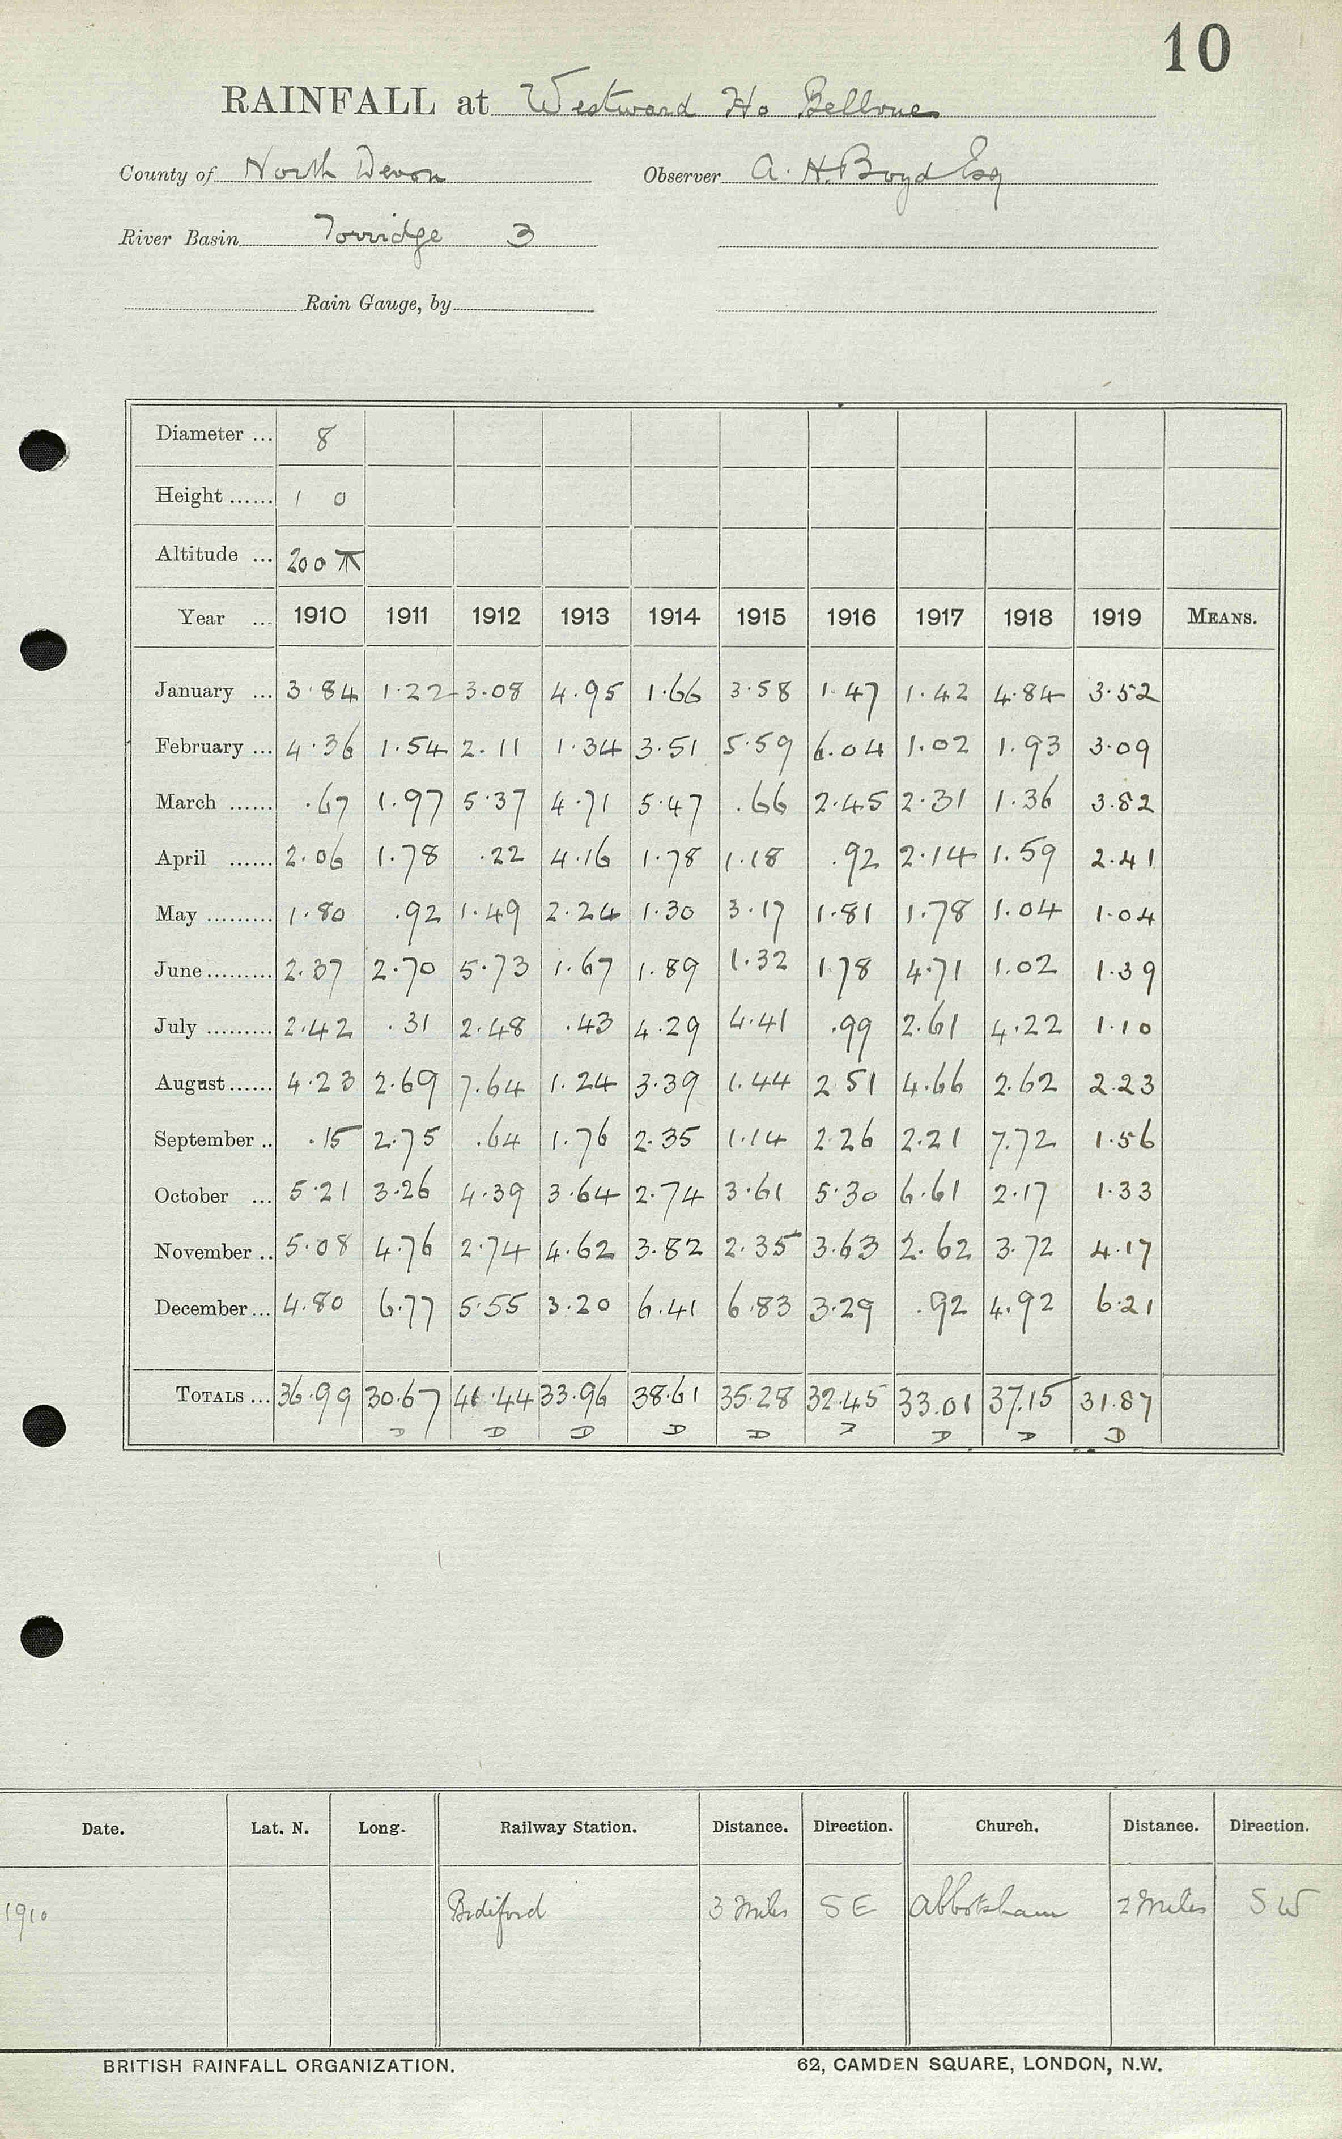 10
RAINFALL at Westward Ho Bellvue
County of North Devon Observer A. H. Boyd Esq
River Basin Torridge 3
Rain Gauge, by
Diameter ... 8
Height ...... 1 0
Altitude ... 200
Year ... 1910 1911 1912 1913 1914 1915 1916 1917 1918 1919 MEANS.
January ... 3.84 1.22 3.08 4.95 1.66 3.58 1.47 1.42 4.84 3.52
February ... 4.36 1.54 2.11 1.34 3.51 5.59 6.04 1.02 1.93 3.09
March ...... .67 1.97 5.37 4.71 5.47 .66 2.45 2.31 1.36 3.82
April ...... 2.06 1.78 .22 4.16 1.78 1.18 .92 2.14 1.59 2.41
May ......... 1.80 .92 1.49 2.24 1.30 3.17 1.81 1.78 1.04 1.04
June......... 2.37 2.70 5.73 1.67 1.89 1.32 1.78 4.71 1.02 1.39
July ......... 2.42 .31 2.48 .43 4.29 4.41 .99 2.61 4.22 1.10
August...... 4.23 2.69 7.64 1.24 3.39 1.44 2.51 4.66 2.62 2.23
September .. .15 2.75 .64 1.76 2.35 1.14 2.26 2.21 7.72 1.56
October ... 5.21 3.26 4.39 3.64 2.74 3.61 5.30 6.61 2.17 1.33
November .. 5.08 4.76 2.74 4.62 3.82 2.35 3.63 2.62 3.72 4.17
December... 4.80 6.77 5.55 3.20 6.41 6.83 3.29 .92 4.92 6.21
TOTALS ... 36.99 30.67 41.44 33.96 38.61 35.28 32.45 33.01 37.15 31.87
D D D D D D D D D
Date. Lat. N. Long. Railway Station. Distance. Direction. Church. Distance. Direction.
1910 Bideford 3 Miles SE Abbotsham 2 Miles SW
BRITISH RAINFALL ORGANIZATION. 62, CAMDEN SQUARE, LONDON, N.W.